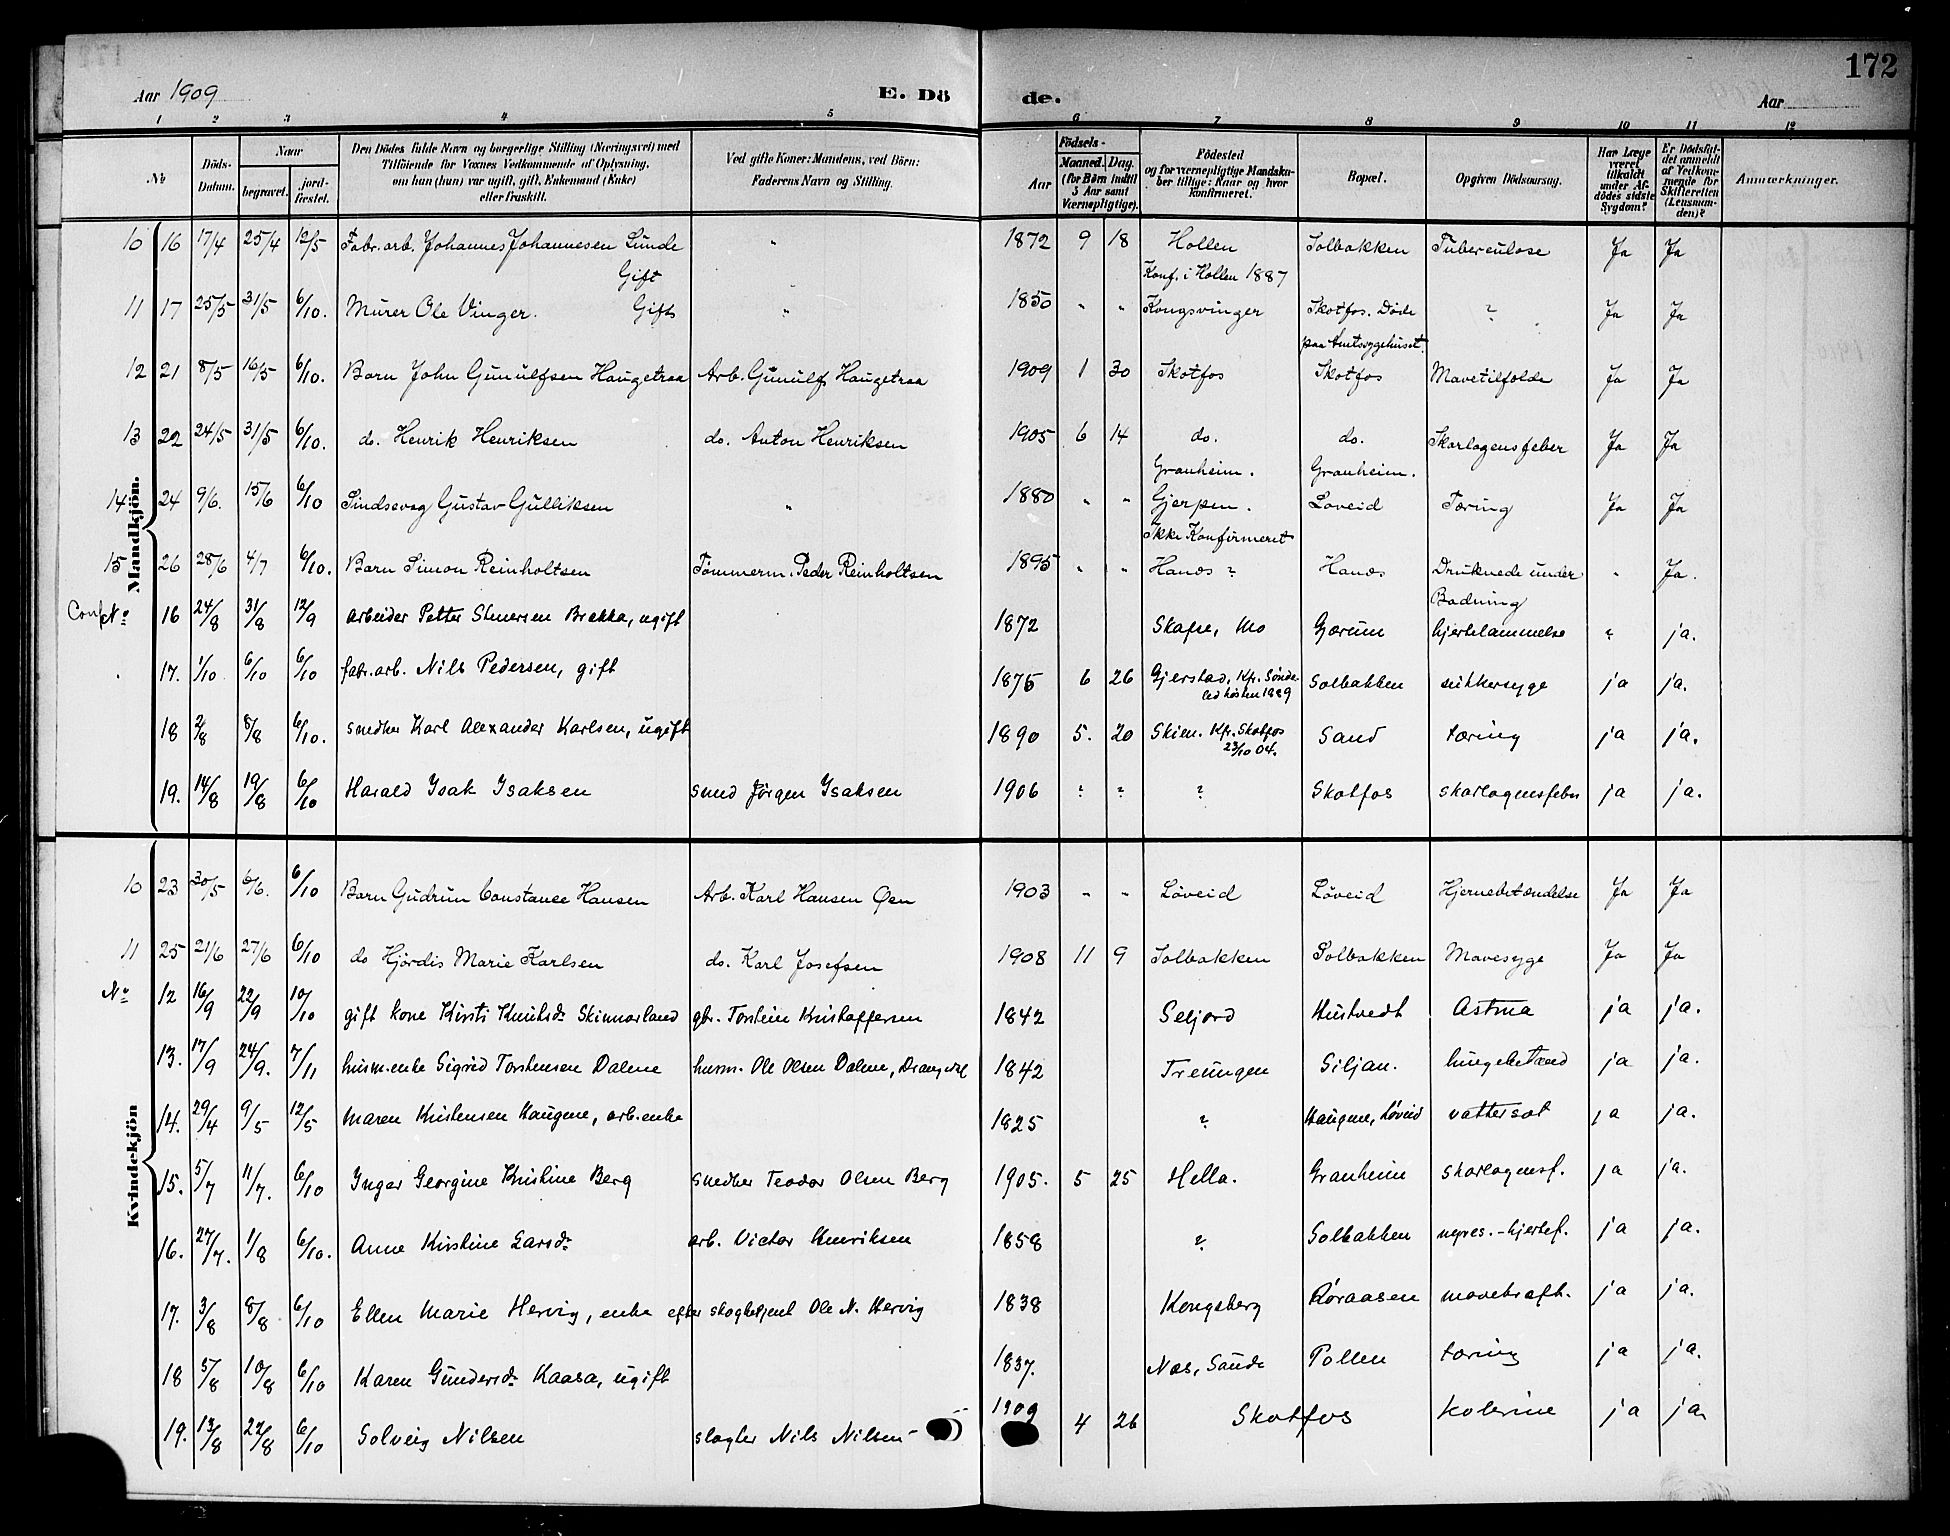 172
Aar 1909
E. Dö de.
Aar
1 2 3 4 5 6 7 8 9 10 11 12
No
Döds-Datum.
Naar
begravet.
jordfæstet.
Den Dödes fulde Navn og borgerlige Stilling (Næringsvei) med
Tilföiende for Voxnes Vedkommende af Oplysning,
om han (hun) var ugift, gift, Enkemand (Enke)
eller fraskilt.
Ved gifte Koner: Mandens, ved Börn:
Faderens Navn og Stilling.
Födsels-
Aar
Maaned. Dag.
(for Börn indtil
5 Aar samt
Værnepligtige).
Födested
og for værnepligtige Mandskaber tillige: Naar og hvor
konfirmeret.
Bopæl.
Opgiven Dödsaarsag.
Har Læge
været
tilkaldt
under Afdödes sidste
Sygdom?
Er Dödsfaldet anmeldt
af Vedkommende for
Skifteretten
(Lensmanden)?
Anmærkninger.
Mandkjön.
10 16 17/4 25/4 12/5 Fabr. arb. Johannes Johannesen Lunde Gift " 1872 9 18 Hollen Konf. i Hollen 1887 Solbakken Tuberculose Ja Ja
11 17 25/5 31/5 6/10. Murer Ole Vinger. Gift " 1850 " " Kongsvinger Skotfos. Döde paa Amtssygehuset. ? Ja Ja
12 21 8/5 16/5 6/10. Barn John Gunulfsen Haugetraa Arb. Gunulf Haugetraa 1909 1 30 Skotfos Skotfos Mavetilfælde Ja Ja
13 22 24/5 31/5 6/10. do. Henrik Henriksen do. Anton Henriksen 1905 6 14 do. Granheim. do. Granheim. Skarlagensfeber Ja Ja
14 24 9/6. 15/6 6/10 Sindssvag Gustav Gulliksen " 1880 " " Gjerpen. Ikke Konfirmeret Løveid Tæring Ja Ja
15 26 28/6 4/7 6/10. Barn Simon Reinholtsen Tömmerm. Peder Reinholtsen 1895 " " Hanös ? Hanös Druknede under Badning " Ja.
No 16 24/8 31/8 12/9 arbeider Petter Brekka, ugift 1872 Skafse, Mo Gorum hjertelammelse ? ja.
17. 1/10 6/10 6/10 fabr. arb. Nils Pedersen, gift 1875 6 26 Gjerstad, Kfr. Søndeled høsten 1889 Solbakken sukkersyge ja ja.
18 2/8 8/8 6/10. snedker Karl Alexander Karlsen, ugift 1890 5. 20 Skien. Kfr. Skotfos 23/10 04. Sand tæring ja ja.
19. 14/8 19/8 6/10 Harald Isak Isaksen smed Jörgen Isaksen 1906 ? ? ? Skotfos skarlagensfeber ja ja.
Kvindekjön
10 23 30/5 6/6. 6/10 Barn Gudrun Constance Hansen Arb. Karl Hansen Øen 1903 " " Løveid Løveid Hjernebetændelse Ja Ja
11 25 21/6 27/6 6/10 do Hjördis Marie Karlsen do. Karl Josefsen 1908 11 9 Solbakken Solbakken Mavesyge Ja Ja
No 12 16/9 22/9 10/10 gift kone Kirsti Knutsdr Skinnarland gbr. Torstein Kristoffersen 1842 Seljord Hustvedt Astma ja ja.
13. 17/9 24/9. 7/11 husm. enke Sigrid Torstensen Dalene husm. Ole Olsen Dalene, Drangedal 1842 Treungen Siljan. lungebetænd ja ja.
14. 29/4 9/5 12/5 Maren Kristensen Haugene, arb. enke 1825 ? Haugene, Løveid vattersot ja ja.
15. 5/7 11/7. 6/10 Inger Georgine Kristine Berg snedker Teodor Olsen Berg 1905. 5 25 Hella. Granheim skarlagensf. ja ja.
16. 27/7. 1/8 6/10. Anne Kirstine Larsdr arb. Victor Henriksen 1858 ? Solbakken nyres.-hjertef. ja ja.
17. 3/8 8/8 6/10 Ellen Marie Hervig, enke efter skogbetjent Ole N. Hervig 1838 Kongsberg Røraasen mavekræft. ja ja.
18 5/8 10/8 6/10 Karen Gundersdr Kaasa, ugift 1837. Næs, Saude Pollen tæring ja ja.
19. 13/8 22/8 6/10 Solveig Nilsen slagter Nils Nilsen 1909 4 26 Skotfos kolerine ja ja.